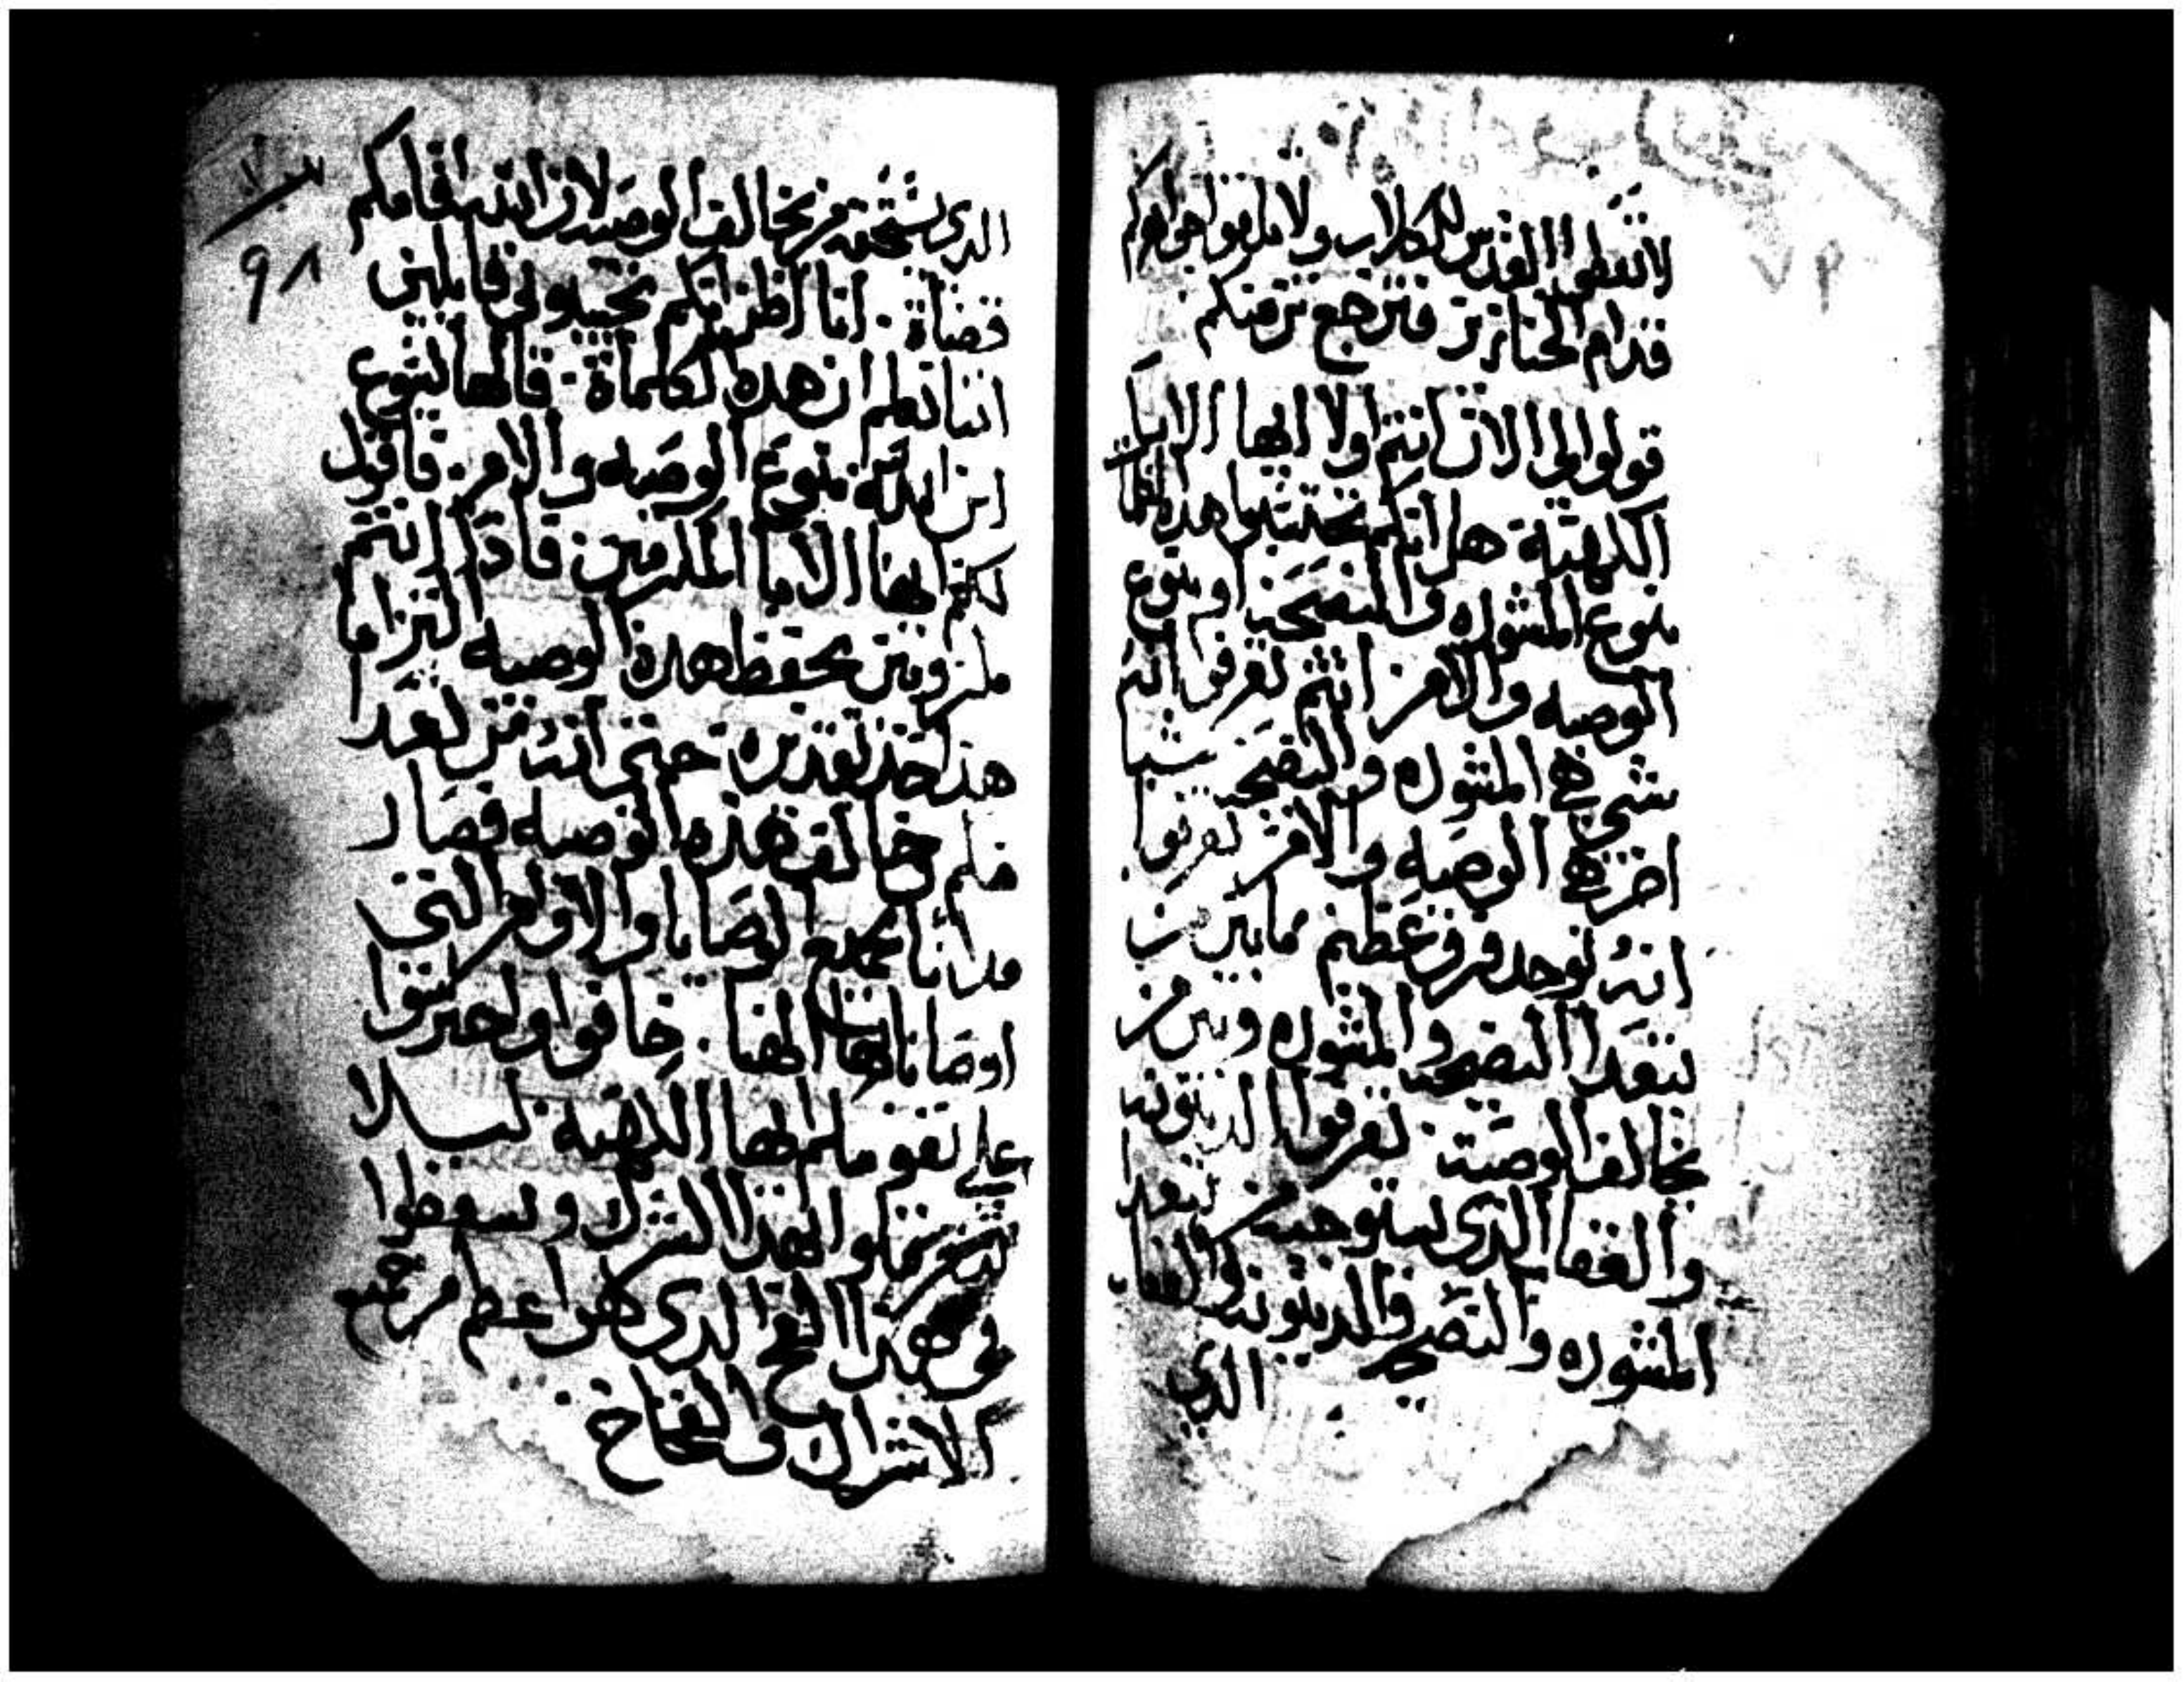 لاتعطوا القدس للكلاب ولا تلقوا جواهركم
قدام الخنازير فترجع تزقتكم
قولوا لي الان انتم اولا ايها الابا
الكهنة هل انكم تحتسبوا هذه
بنوع المشوره والنصيحه او بنوع
الوصيه والامر انتم تعرفوا انه
شي هي المشوره والنصيحه شيا
اخر هي الوصيه والامر تعرفوا
انه توجد فرق عظيم مابين من
يتعدا النصيحه والمشوره وبين من
يخالف الوصية. تعرفوا الدينونه
والعقاب الذي يستوجبه من يتعدا
المشوره والنصيحه والدينونه والعقاب
الذي
٩٨
الذي يستحقه من يخالف الوصيه لان الله اقامكم
قضاة. انا اظن انكم تجيبوني قايلين
اننا نعلم ان هذه الكلماة. قالها يسوع
ابن الله بنوع الوصيه والامر. فاقول
لكم ايها الابا المكرمين. فاذا انتم
ملزومين بحفظ هذه الوصيه التزاما
هذا حد تقديره حتى انه من تعدا
فلم خالف هذه الوصيه فصار
مدانا بجميع الوصايا والاوامر التي
اوصانا بها الهنا. خافوا واحترسوا
على نفوسكم ايها الكهنة ليلا
تتعرقلوا بهذا الشرك وتسقطوا
في هذا الفخ الذي هو اعظم من جميع
الاشراك والفخاخ